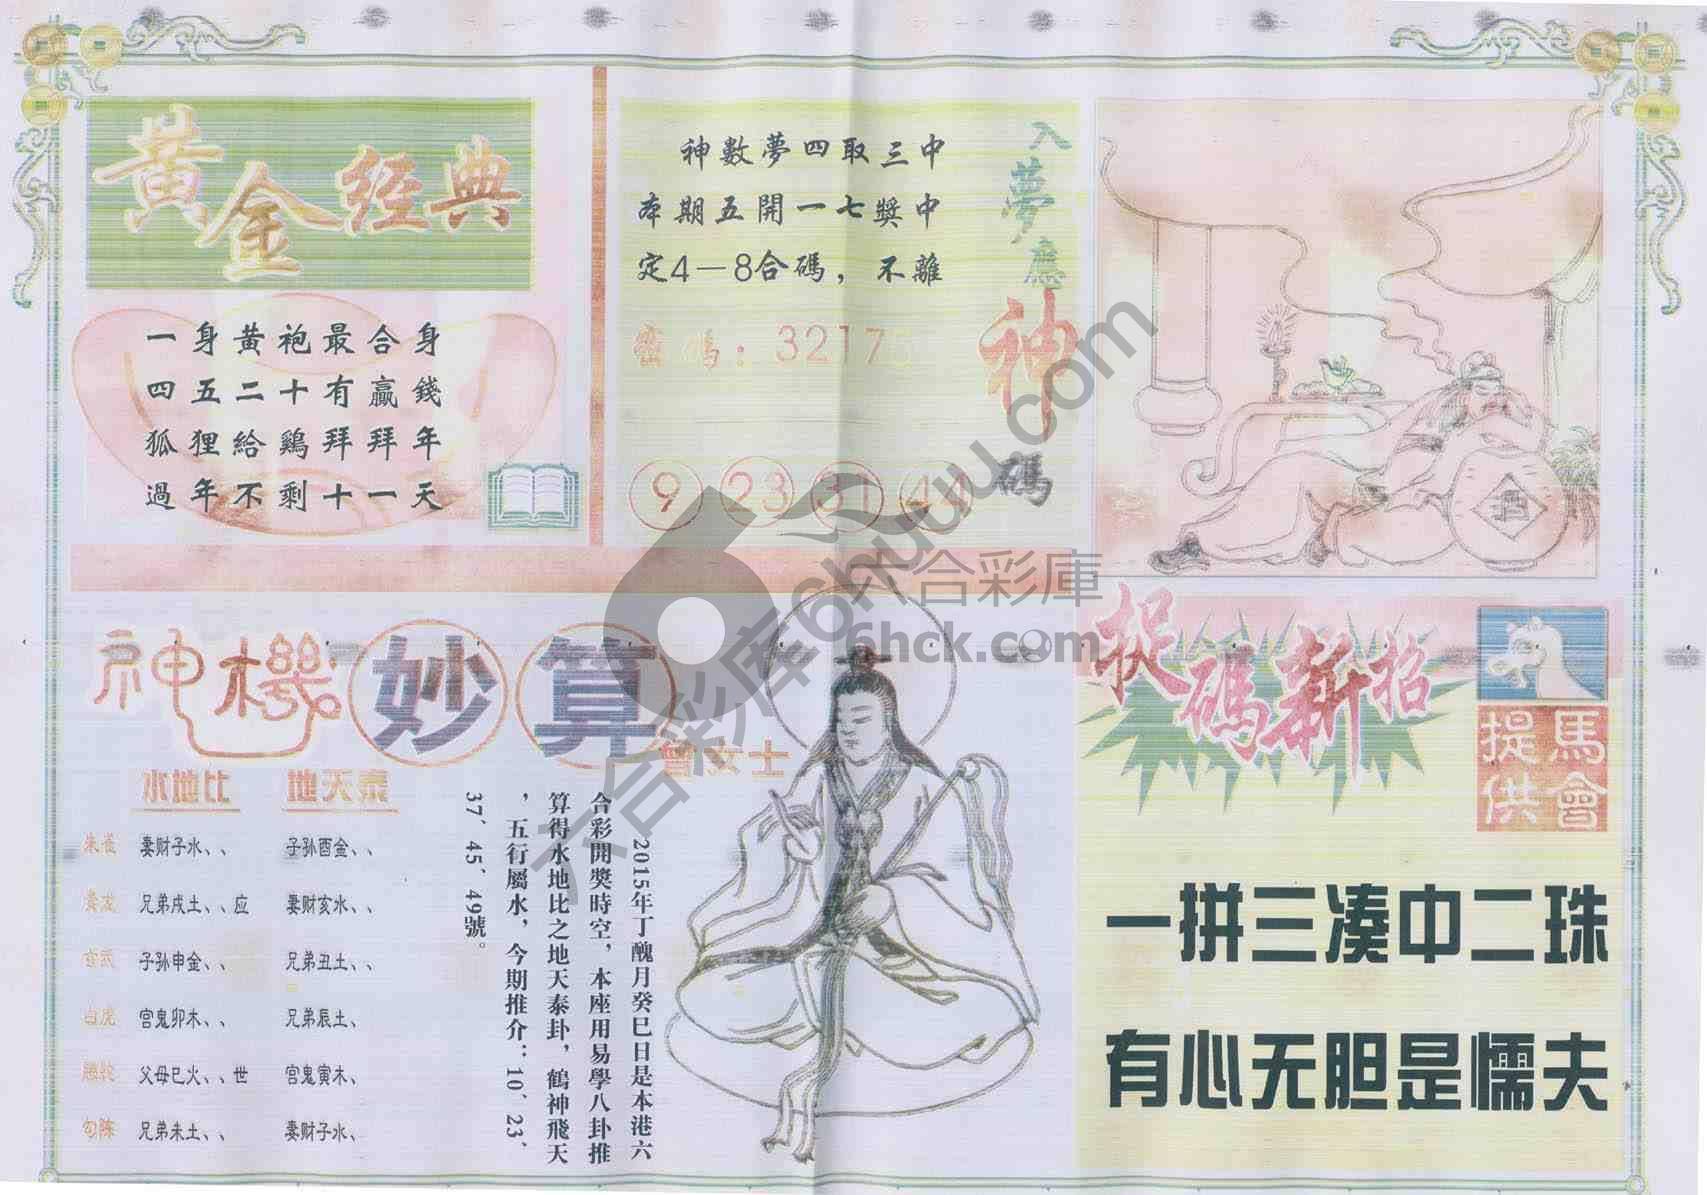 黃金經典
一身黃袍最合身
四五二十有贏錢
狐狸給鷄拜拜年
過年不剩十一天
神數夢四取三中
本期五開一七獎中
定4—8合碼，不離
密碼：3217
9 23 31 41
入夢應神碼
神機妙算
曾女士
水地比 地天泰
朱雀 妻财子水、、 子孙酉金、、
青龙 兄弟戌土、、应 妻财亥水、、
玄武 子孙申金、、 兄弟丑土、、
白虎 官鬼卯木、、 兄弟辰土、
螣蛇 父母巳火、、世 官鬼寅木、
勾陈 兄弟未土、、 妻财子水、
2015年丁醜月癸巳日是本港六
合彩開獎時空，本座用易學八卦推
算得水地比之地天泰卦，鶴神飛天
，五行屬水，今期推介：10、23、
37、45、49號。
捉碼新招
馬會提供
一拼三凑中二珠
有心无胆是懦夫
六合彩库6huuu.com
六合彩庫
6hck.com